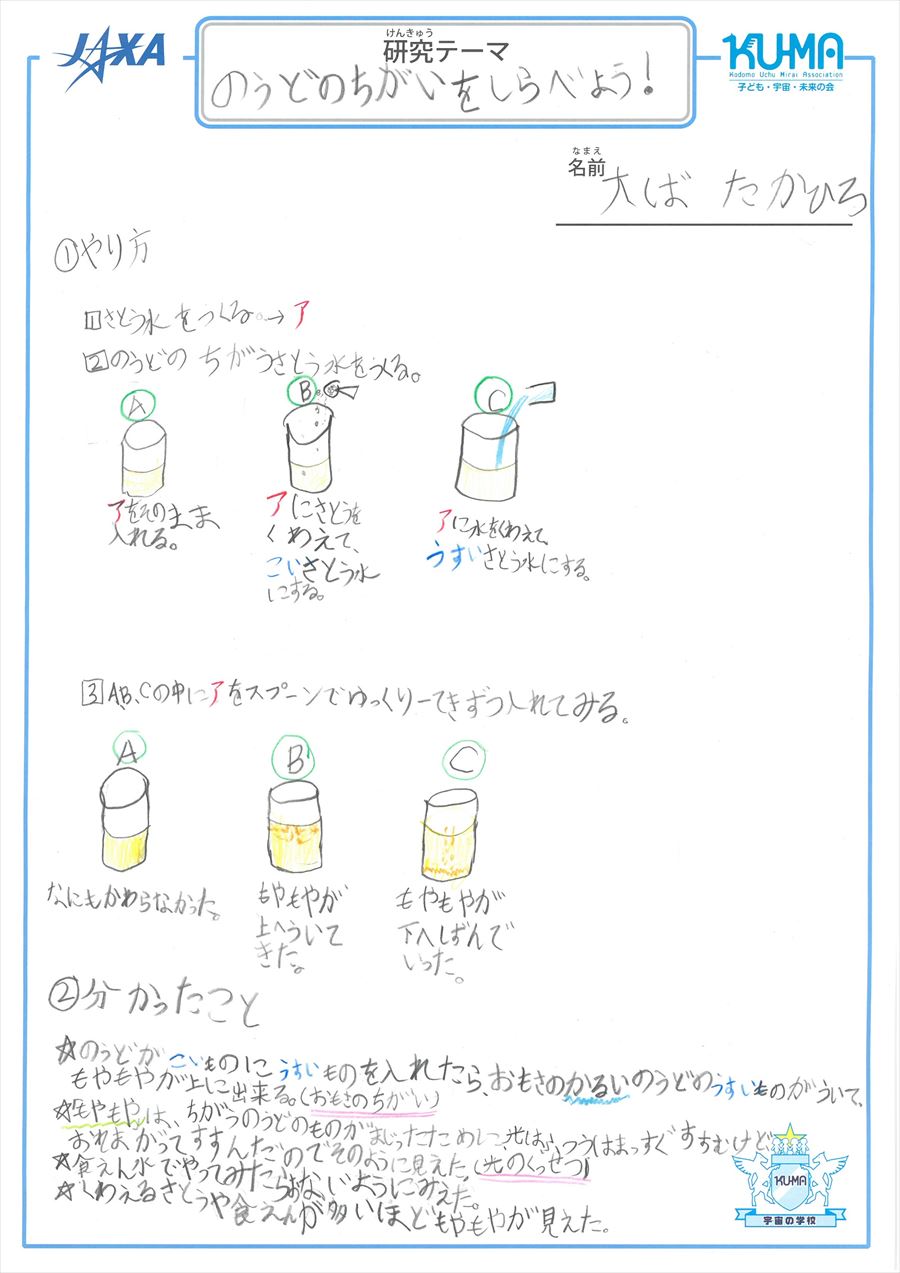 JAXA
けんきゅう
研究テーマ
のうどのちがいをしらべよう!
KU-MA
Kodomo Uchu Mirai Association
子ども・宇宙・未来の会
なまえ
名前
大ば たかひろ
①やり方
1 さとう水をつくる。→ア
2 のうどの ちがうさとう水をつくる。
A
アをそのまま
入れる。
B
アにさとうを
くわえて、
こいさとう水
にする。
C
アに水をくわえて、
うすいさとう水にする。
3 A、B、Cの中にアをスプーンでゆっくり一てきずつ入れてみる。
A
なにもかわらなかった。
B
もやもやが
上へういて
きた。
C
もやもやが
下へしずんで
いった。
②分かったこと
☆のうどがこいものにうすいものを入れたら、おもさのかるいのうどのうすいものがういて、
もやもやが上に出来る。(おもさのちがい)
☆もやもやは、ちがうのうどのものがまじったため、光は、ふつうはまっすぐすすむけど
おれまがってすすんだのでそのように見えた。(光のくっせつ)
☆食えん水でやってみたらおなじようにみえた。
☆くわえるさとうや食えんが多いほどもやもやが見えた。
KU-MA
宇宙の学校